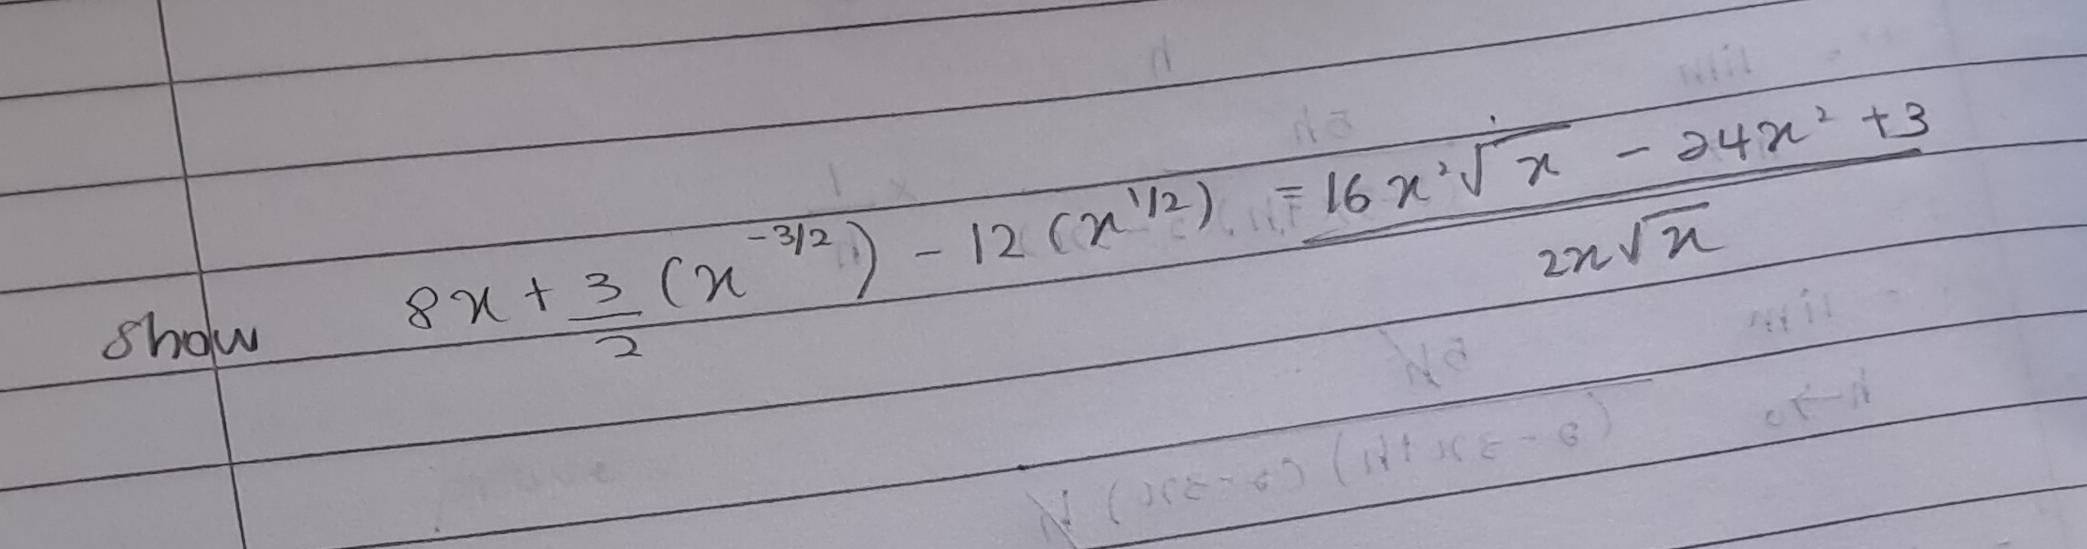 show 8x + 3/2 (x^-3/2) - 12 (x^1/2) = 16x²√x - 24x² + 3 / 2x√x